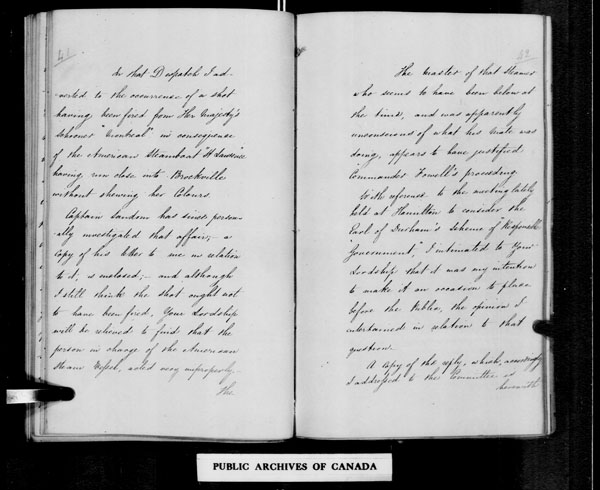 In that Despatch I ad-
verted to the occurrence of a shot
having been fired from Her Majesty's
Schooner "Montreal" in consequence
of the American Steamboat "St Lawrence"
having run close into Brockville
without shewing her Colours.
Captain Sandom has since person-
ally investigated that affair;- a
Copy of his letter to me in relation
to it, is enclosed;- and although
I still think the shot ought not
to have been fired, Your Lordship
will be relieved to find that the
person in charge of the American
Steam Vessel, acted very improperly.-
The
The Master of that Steamer
who seems to have been below at
the time, and was apparently
unconscious of what his Mate was
doing, appears to have justified
Commander Fowell's proceeding.
With reference to the meeting lately
held at Hamilton to consider the
Earl of Durham's Scheme of "Responsible
Government", I intimated to Your
Lordship that it was my intention
to make it an occasion to place
before the Public, the opinion I
entertained in relation to that
question.
A Copy of the reply, which, accordingly
I addressed to the Committee is
herewith
PUBLIC ARCHIVES OF CANADA